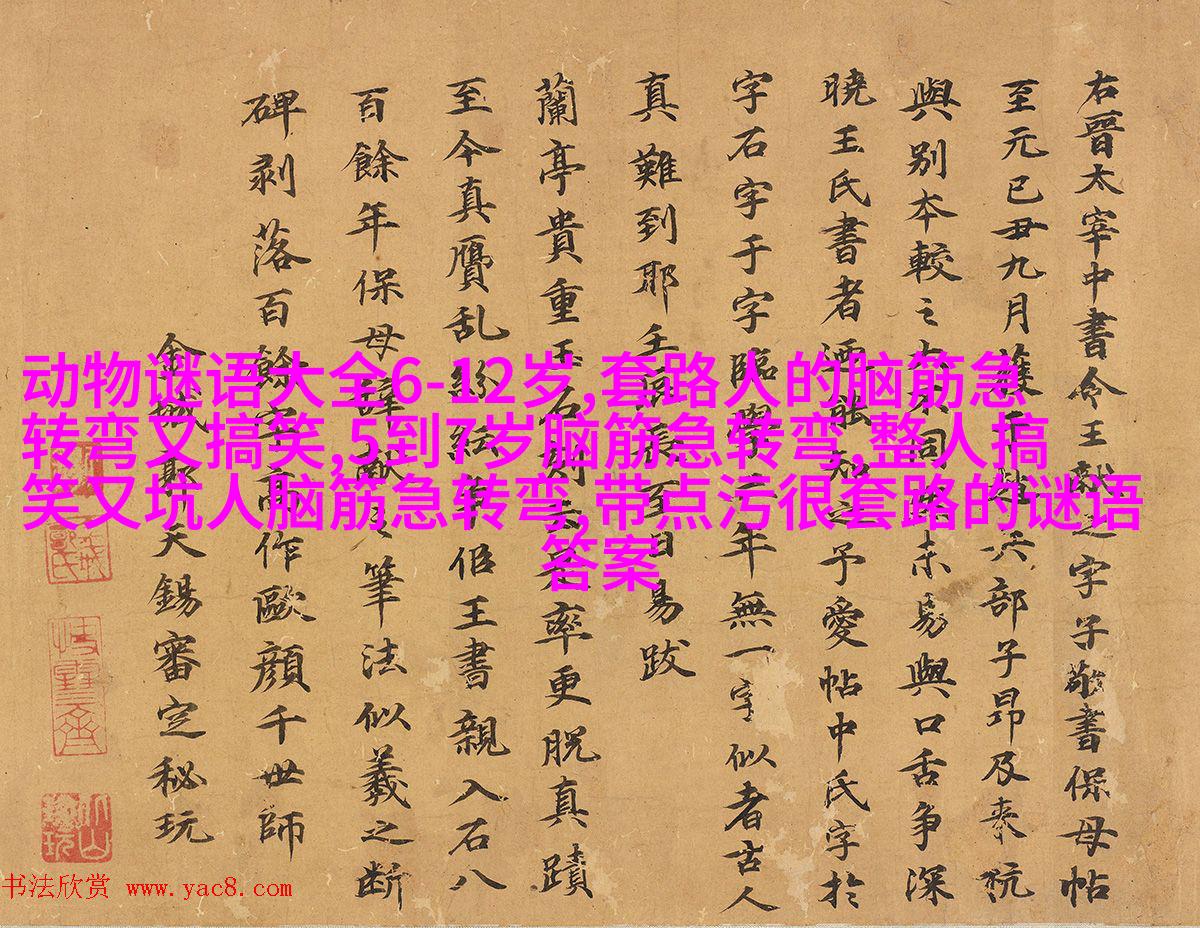 动物谜语大全6-12岁,套路人的脑筋急
转弯又搞笑,5到7岁脑筋急转弯,整人搞
笑又坑人脑筋急转弯,带点污很套路的谜语
答案
右晉太宰中書令王献之字子敬書保母帖
至元己丑九月獲于兵部子昂及来杭
與别本較之不同未易與口舌争深
曉王氏書者能知之予愛帖中氏字於
字石字于字臨學二年無一字似者古人
真難到耶壬辰長至日易跋
蘭亭貴重玉石刻率更脱真蹟
至今真贋乱紛紜筆但王書親入石八
百餘年保母辭献之筆法似羲之断
碑剥落百餘字高作歐顔千世師
金城郭天錫審定秘玩
书法欣赏 www.yac8.com